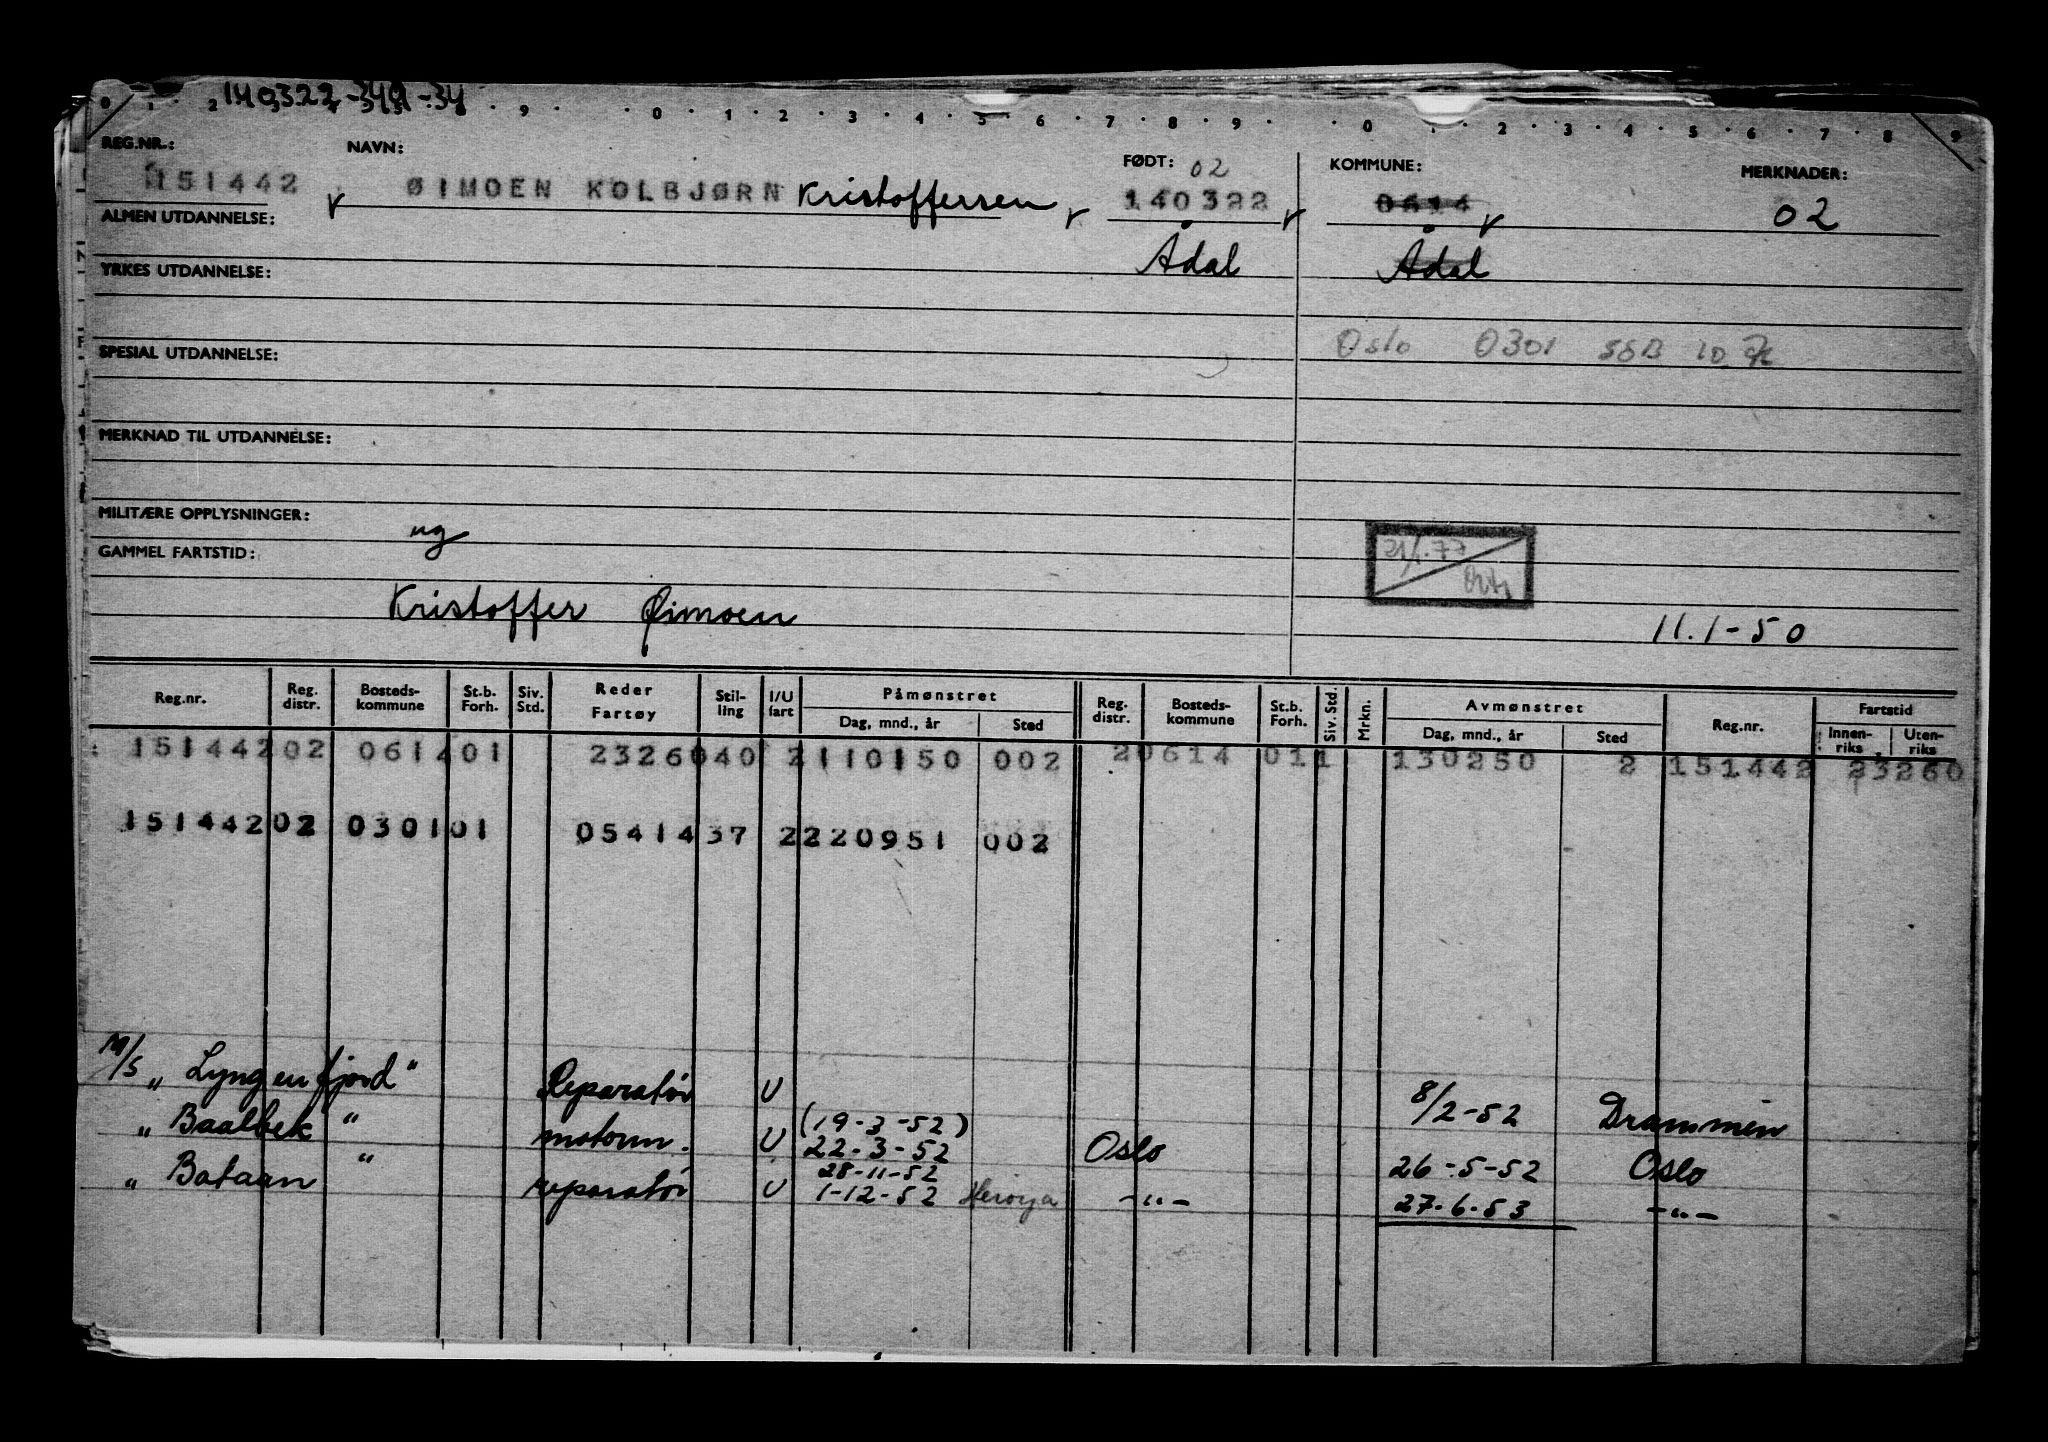 140322-349-34
0 1 2 9 0 1 2 3 4 5 6 7 8 9 0 1 2 3 4 5 6 7 8 9
REG.NR.: NAVN: FØDT: 02 KOMMUNE: MERKNADER:
151442 ØIMOEN KOLBJØRN Kristoffersen 140322 0614 02
ALMEN UTDANNELSE: Ådal Ådal
YRKES UTDANNELSE:
Oslo 0301 SSB 10
SPESIAL UTDANNELSE:
MERKNAD TIL UTDANNELSE:
MILITÆRE OPPLYSNINGER: ug
GAMMEL FARTSTID:
Kristoffer Øimoen 11.1-50
Reg.nr. Reg. distr. Bosteds-kommune St.b. Forh. Siv. Std. Reder Fartøy Stil-ling I/U fart Påmønstret Dag, mnd., år Sted Reg. distr. Bosteds-kommune St.b. Forh. Siv. Std. Mrkn. Avmønstret Dag, mnd., år Sted Reg.nr. Fartstid Innen-riks Uten-riks
151442 02 0614 01 2326040 2 110150 002 2 0614 01 1 130250 2 151442 23260
151442 02 0301 01 0541437 2 220951 002
M/S "Lyngenfjord" Reparatør U 8/2-52 Drammen
(19-3-52)
"Baalbek" motorm. U 22-3-52 Oslo 26-5-52 Oslo
28-11-52
"Bataan" reparatør U 1-12-52 Herøya -"- 27-6-53 -"-